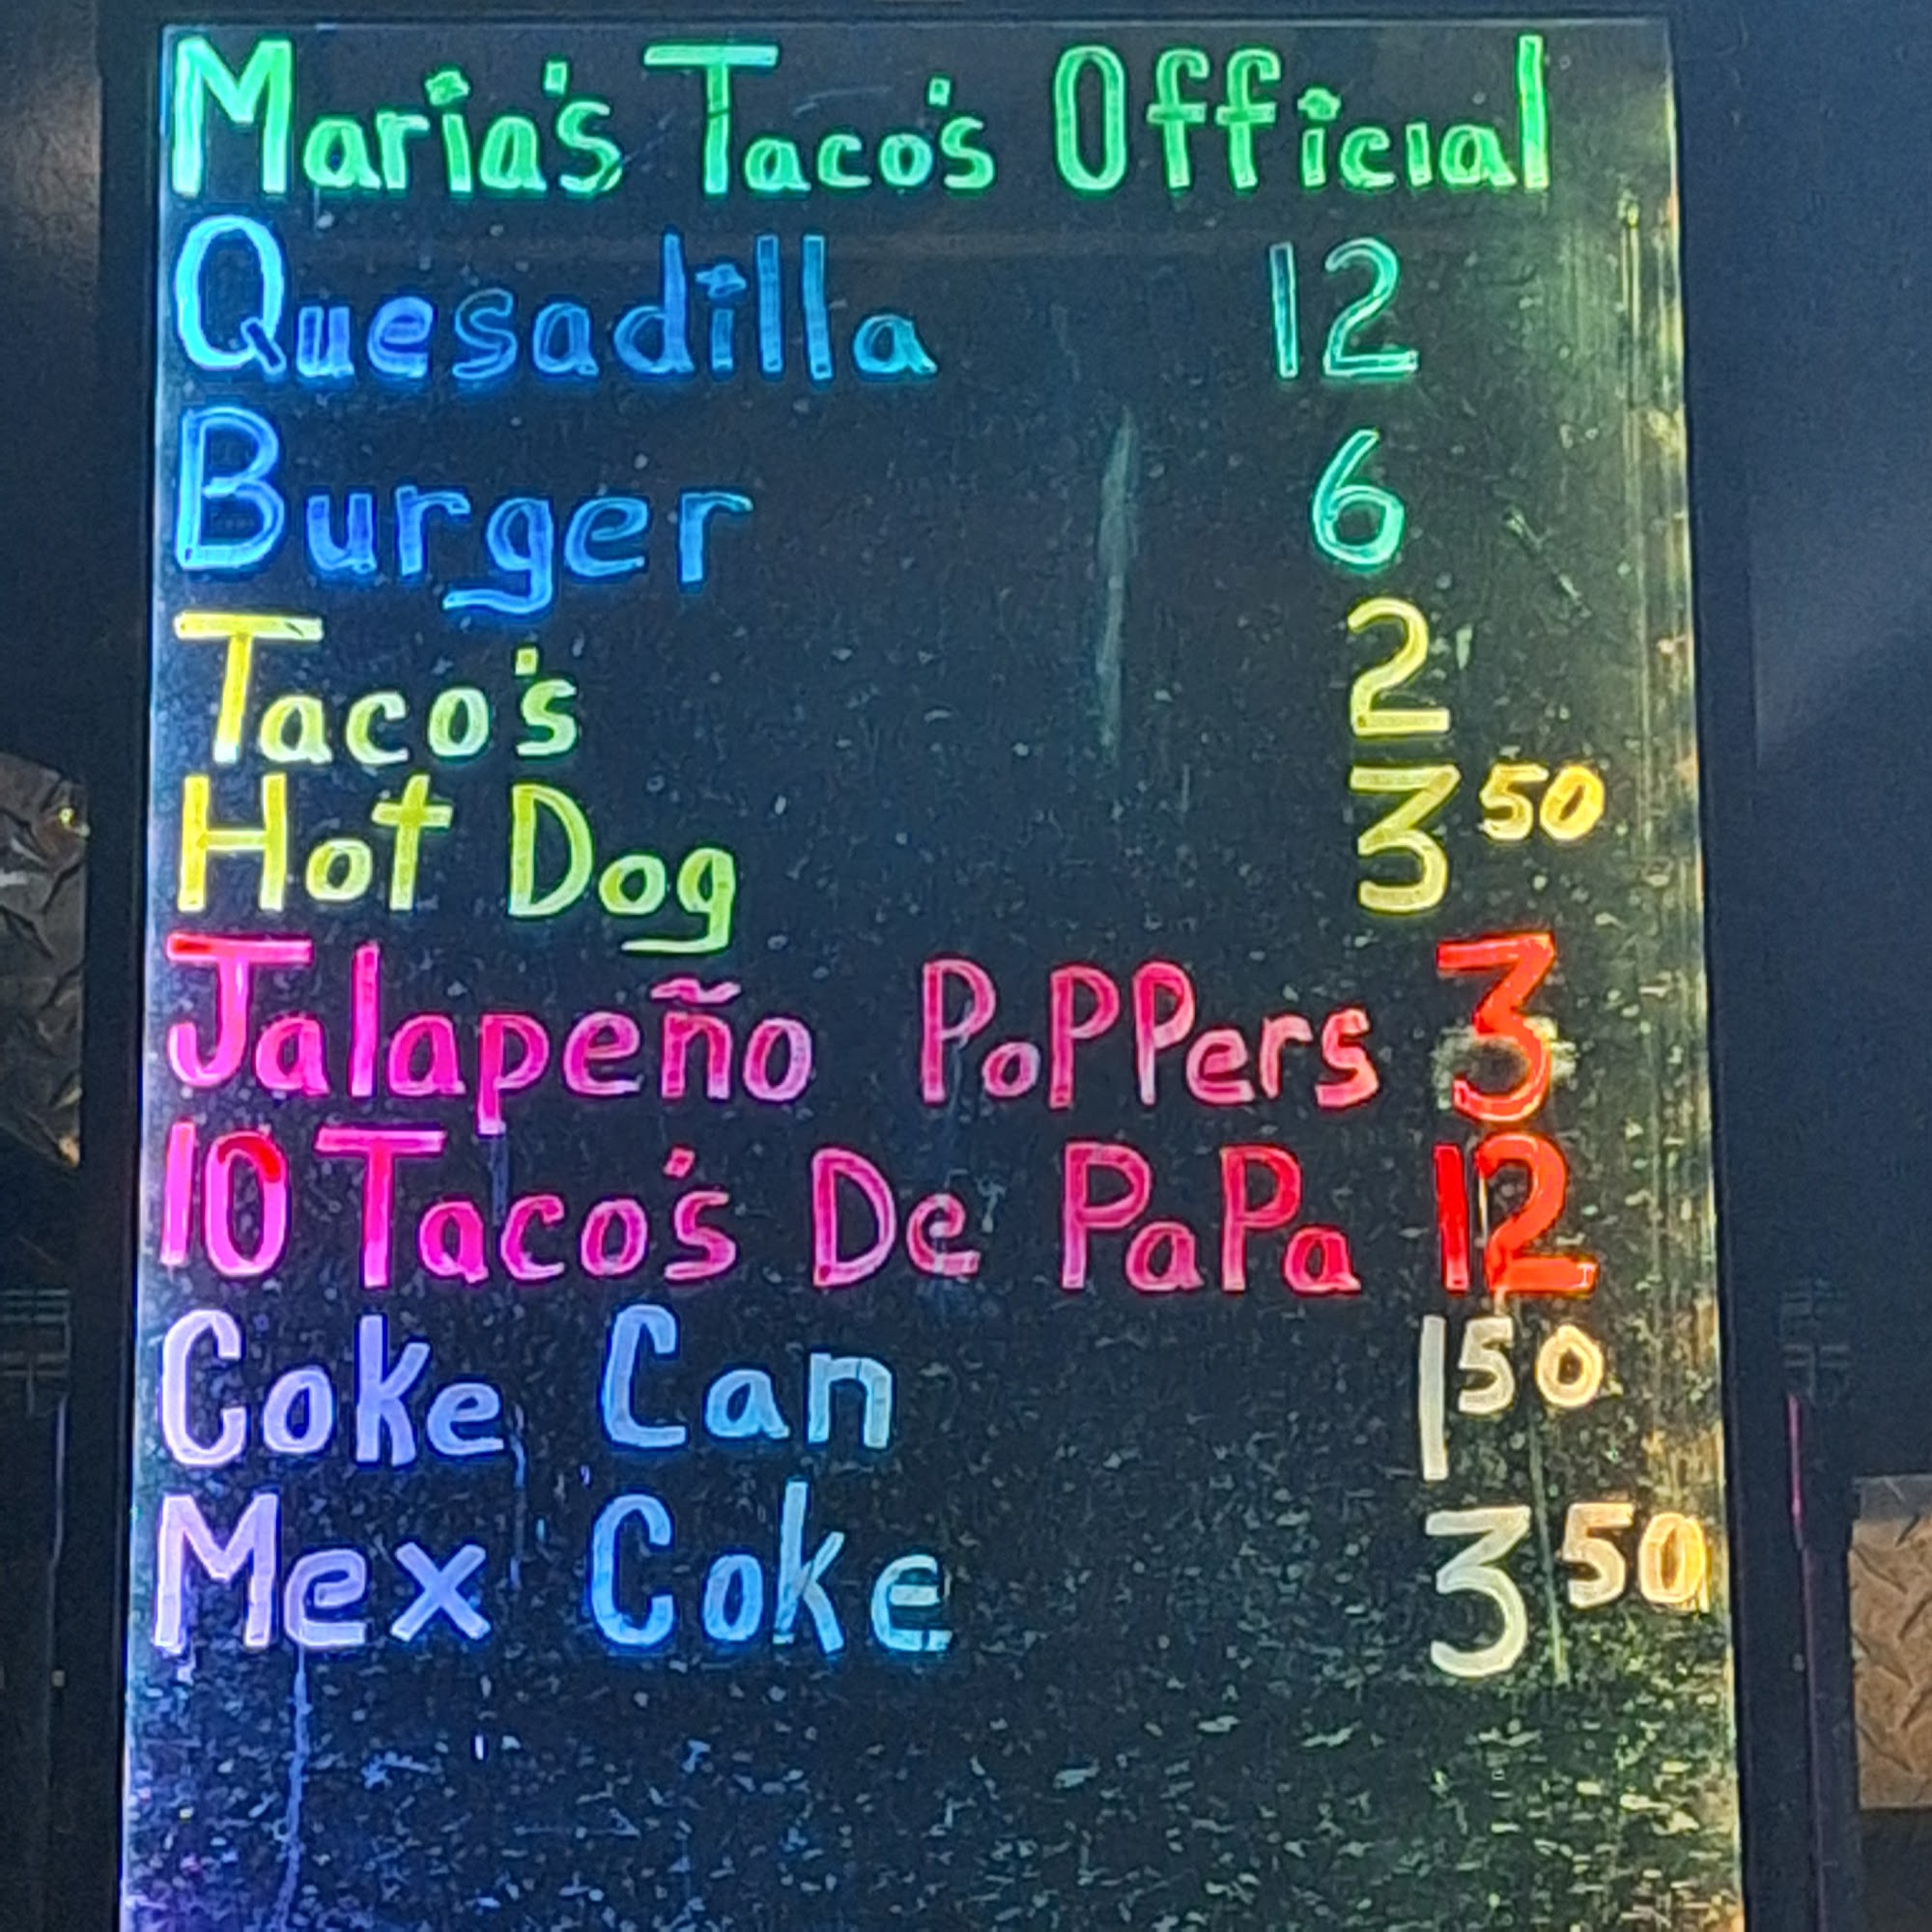 Maria's Taco's Official
Quesadilla 12
Burger 6
Taco's 2
Hot Dog 3 50
Jalapeño PoPPers 3
10 Taco's De PaPa 12
Coke Can 1 50
Mex Coke 3 50